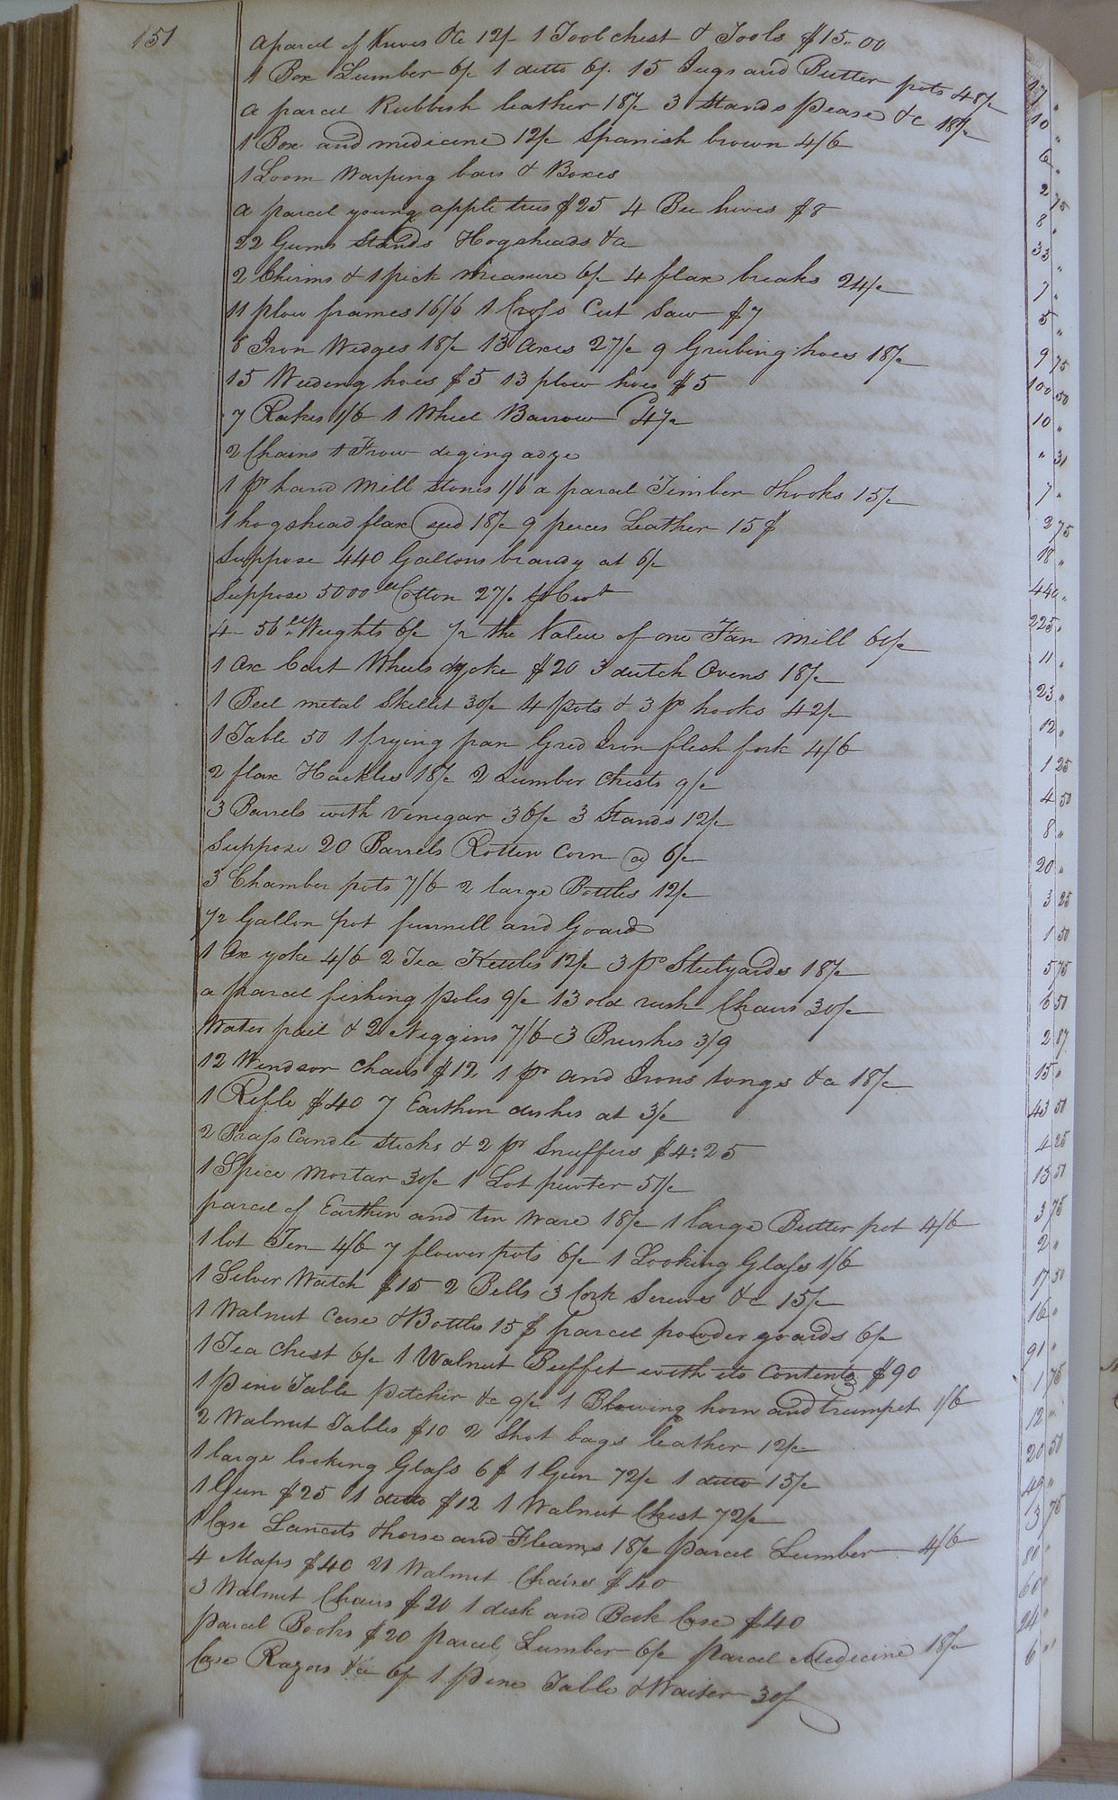 151
a parcel of Knives &c 12/- 1 Tool chest & Tools $15.00 17 "
1 Box Lumber 6/- 1 ditto 6/- 15 Jugs and Butter pots 48/- 10 "
a parcel Rubbish leather 18/- 3 Stands Pease &c 18/- 6 "
1 Box and medicine 12/- Spanish brown 4/6 2 75
1 Loom Warping bars & Boxes 8 "
a parcel young apple trees $25 4 Bee hives $8 33 "
22 Gums Stands Hogsheads &c 7 "
2 Chirns & 1 pick measure 6/- 4 flax breaks 24/- 5 "
11 plow frames 16/6 1 Cross Cut Saw $7 9 75
8 Iron Wedges 18/- 13 Axes 27/- 9 Grubing hoes 18/- 10 50
15 Weeding hoes $5 13 plow hoes $5 10 "
7 Rakes 1/6 1 Wheel Barrow 4/- " 31
2 Chains & Frow diging adze 7 "
1 pr hand Mill Stones 1/6 a parcel Timber & hooks 15/- 2 75
1 hogshead flax seed 18/- 9 peices Leather 15 $ 18 "
Suppose 440 Gallons brandy at 6/- 440 "
Suppose 5000 lb Cotton 27/- pr Cwt 225 "
4 56 lb Weights 6/- 1/2 the Value of one Fan Mill 60/- 11 "
1 Ox Cart Wheels & yoke $20 3 dutch Ovens 18/- 23 "
1 Bell metal Skellet 30/- 4 pots & 3 pr hooks 42/- 12 "
1 Table 50 1 frying pan Gred Iron flesh fork 4/6 1 25
2 flax Hackles 18/- 2 Lumber Chests 9/- 4 50
3 Barrels with Vinegar 36/- 3 Stands 12/- 8 "
Suppose 20 Barrels Rotten Corn @ 6/- 20 "
3 Chamber pots 7/6 2 large Bottles 12/- 3 25
1/2 Gallon pot funnell and Goard 1 50
1 Ox yoke 4/6 2 Tea Kettles 12/- 3 pr Steelyards 18/- 5 75
a parcel fishing poles 9/- 13 old rush Chairs 30/- 6 50
Water pail & 2 Niggins 7/6 3 Brushes 3/9 2 87
12 Windsor chairs $12 1 pr and Irons tongs &c 18/- 15 "
1 Rifle $40 7 Earthen dishes at 3/- 43 50
2 Brass Candle sticks & 2 pr Snuffers $4:25 4 25
1 Spice Mortar 30/- 1 Lot pewter 51/- 13 50
parcel of Earthen and tin Ware 18/- 1 large Butter pot 4/6 3 75
1 lot Tin 4/6 7 flower pots 6/- 1 Looking Glass 1/6 2 "
1 Silver Watch $15 2 Bells 3 Cork Screws &c 15/- 17 50
1 Walnut Case & Bottles 15 $ parcel powder goards 6/- 16 "
1 Tea Chest 6/- 1 Walnut Buffet with its Contents $90 91 "
1 pine Table pitcher &c 9/- 1 Blowing horn and trumpet 1/6 1 75
2 Walnut Tables $10 2 Shot bags leather 12/- 12 "
1 large looking Glass 6 $ 1 Gun 72/- 1 ditto 15/- 20 50
1 Gun $25 1 ditto $12 1 Walnut Chest 72/- 49 "
1 Case Lancets & horse and Fleams 18/- parcel Lumber 4/6 3 75
4 Maps $40 21 Walnut Chaires $40 80 "
3 Walnut Chairs $20 1 desk and Book Case $40 60 "
parcel Books $20 parcel Lumber 6/- parcel Medicine 18/- 24 "
Case Razors &c 6/- 1 pine Table & Waiter 30/- 6 "